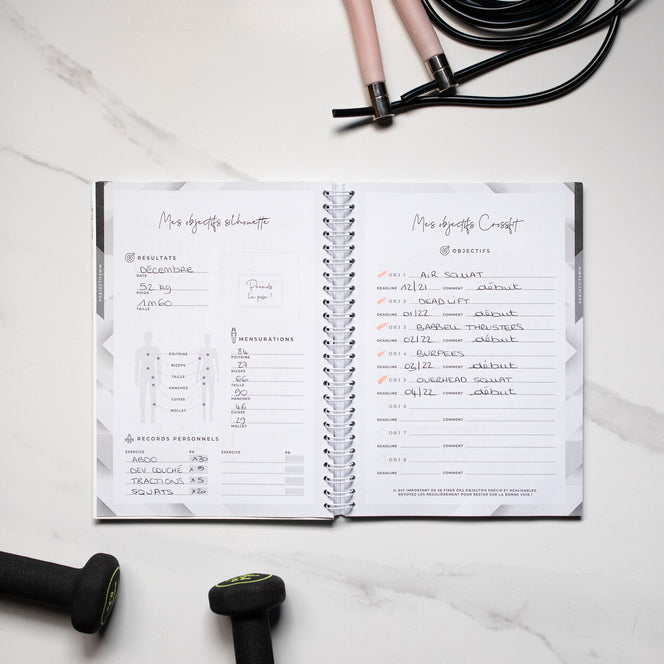 Mes objectifs silhouette
RÉSULTATS
Décembre
DATE
52 kg
POIDS
1m60
TAILLE
Prends
la pose !
MENSURATIONS
84
POITRINE
27
BICEPS
66
TAILLE
90
HANCHES
46
CUISSE
29
MOLLET
POITRINE
BICEPS
TAILLE
HANCHES
CUISSE
MOLLET
RECORDS PERSONNELS
EXERCICE PR EXERCICE PR
ABDO x30
DEV. COUCHÉ x 8
TRACTIONS x 5
SQUATS x20
Mes objectifs Crossfit
OBJECTIFS
OBJ 1 AIR SQUAT
DEADLINE 12/21 COMMENT début
OBJ 2 DEADLIFT
DEADLINE 01/22 COMMENT début
OBJ 3 BARBELL THRUSTERS
DEADLINE 02/22 COMMENT début
OBJ 4 BURPEES
DEADLINE 03/22 COMMENT début
OBJ 5 OVERHEAD SQUAT
DEADLINE 04/22 COMMENT début
OBJ 6
DEADLINE COMMENT
OBJ 7
DEADLINE COMMENT
OBJ 8
DEADLINE COMMENT
IL EST IMPORTANT DE SE FIXER DES OBJECTIFS PRÉCIS ET RÉALISABLES.
REVOYEZ LES RÉGULIÈREMENT POUR RESTER SUR LA BONNE VOIE !